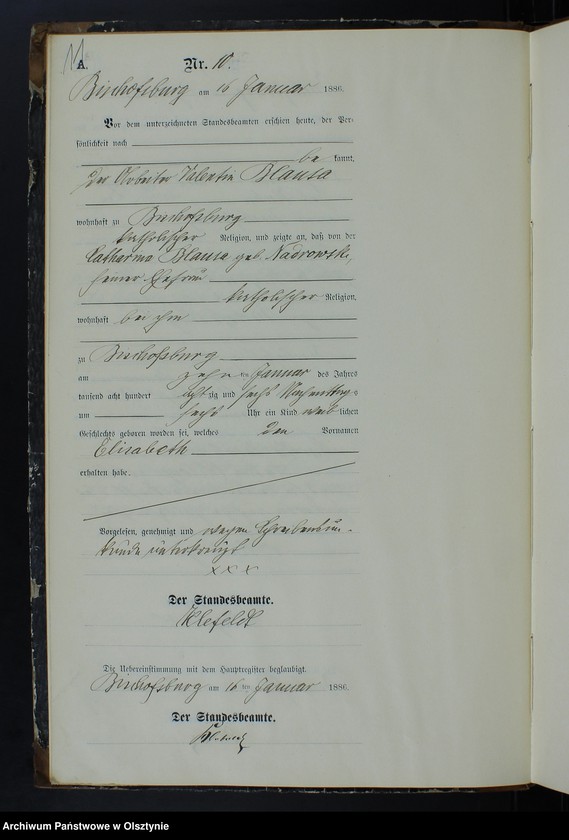 A. Nr. 10.
Bischofsburg am 16 Januar 1886.
Vor dem unterzeichneten Standesbeamten erschien heute, der Per-
sönlichkeit nach
be kannt,
der Arbeiter Valentin Blausa
wohnhaft zu Bischofsburg
katholischer Religion, und zeigte an, daß von der
Catharina Blausa geb. Nadrowski,
seiner Ehefrau
katholischer Religion,
wohnhaft bei ihm
zu Bischofsburg
am zehn ten Januar des Jahres
tausend acht hundert achtzig und sechs Nachmittags
um sechs Uhr ein Kind weiblichen
Geschlechts geboren worden sei, welches den Vornamen
Elisabeth
erhalten habe.
Vorgelesen, genehmigt und wegen Schreibensun-
kunde unterkreuzt
x x x
Der Standesbeamte.
Klefeldt
Die Uebereinstimmung mit dem Hauptregister beglaubigt.
Bischofsburg am 16 ten Januar 1886.
Der Standesbeamte.
Archiwum Państwowe w Olsztynie